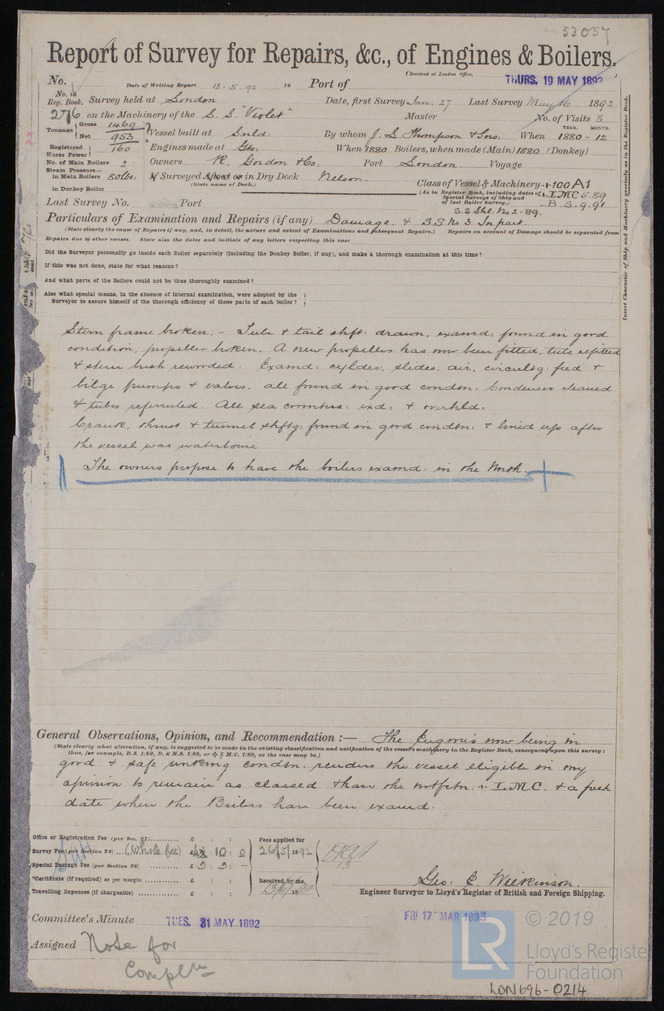 53057
Report of Survey for Repairs, &c., of Engines & Boilers.
(Received at London Office, THURS. 19 MAY 1892
No. Date of Writing Report 13.5.92 18 Port of
No. in Reg. Book. Survey held at London Date, first Survey Jan. 27 Last Survey May 16 1892
276 on the Machinery of the S.S. "Violet" Master No. of Visits 8
Tonnage Gross 1469 Net 953 Vessel built at Snld. By whom J. L. Thompson & Sons. When YEAR. MONTH. 1880-12
Registered Horse Power 160 Engines made at Do. When 1880 Boilers, when made (Main) 1880 (Donkey)
No. of Main Boilers 2 Owners R. Gordon & Co. Port London. Voyage
Steam Pressure in Main Boilers 80lbs. If Surveyed Afloat or in Dry Dock Nelson.
(State name of Dock.)
in Donkey Boiler
Class of Vessel & Machinery +100A1
(As in Register Book, including dates of Special Surveys of Ship and of last Boiler Survey.) + L.M.C. 5.89
B.S. 9.91
S.S. Shl. No 2-89.
Last Survey No. Port
Particulars of Examination and Repairs (if any) Damage. & B.S No 3 In part.
(State clearly the cause of Repairs if any, and, in detail, the nature and extent of Examinations and subsequent Repairs.) Repairs on account of Damage should be separated from
Repairs due to other causes. State also the dates and initials of any letters respecting this case
Did the Surveyor personally go inside each Boiler separately (including the Donkey Boiler, if any), and make a thorough examination at this time?
If this was not done, state for what reasons?
And what parts of the Boilers could not be thus thoroughly examined?
Also what special means, in the absence of internal examination, were adopted by the
Surveyor to assure himself of the thorough efficiency of those parts of each boiler?
Insert Character of Ship and Machinery precisely as in the Register Book.
Stern frame broken. - Tube & tail shft. drawn, examd. found in good
condition, propeller broken. A new propeller has now been fitted, tube refitted
& stern bush rewooded. Examd. cyldrs, slides, air, circultg. feed &
bilge pumps & valves. all found in good condtn. Condenser cleaned
& tubes referruled. All sea connters. exd. & overhld.
Crank, thrust & tunnel shftg. found in good condtn. & lined up after
the vessel was waterborne
The owners propose to have the boilers examd. in the North.
General Observations, Opinion, and Recommendation :— The Engines now being in
(State clearly what alteration, if any, is suggested to be made in the existing classification and notification of the vessel's machinery in the Register Book, consequent upon this survey;
thus, for example, B.S. 1/89, B. & M.S. 1/89, or + L.M.C. 1/89, as the case may be.)
good & safe working condtn. renders the vessel eligible in my
opinion to remain as classed & have the notfctn. + L.M.C. & a fresh
date when the Boilers have been examd.
Office or Registration Fee (per Sec. 27) £ : : Fees applied for
Survey Fee (per Section 28) (Whole fee) £ : 10 : 0 26/5/1892
Special Damage Fee (per Section 28) £ 3 : 3 : -
*Certificate (if required) as per margin £ : : Received by me,
Travelling Expenses (if chargeable) £ : :
Geo: C. Wilkinson.
Engineer Surveyor to Lloyd's Register of British and Foreign Shipping.
Committee's Minute TUES. 31 MAY 1892 FRI 17 MAR 1893
Assigned Note for
Compln
© 2019
LR
Lloyd's Register
Foundation
LDN696-0214